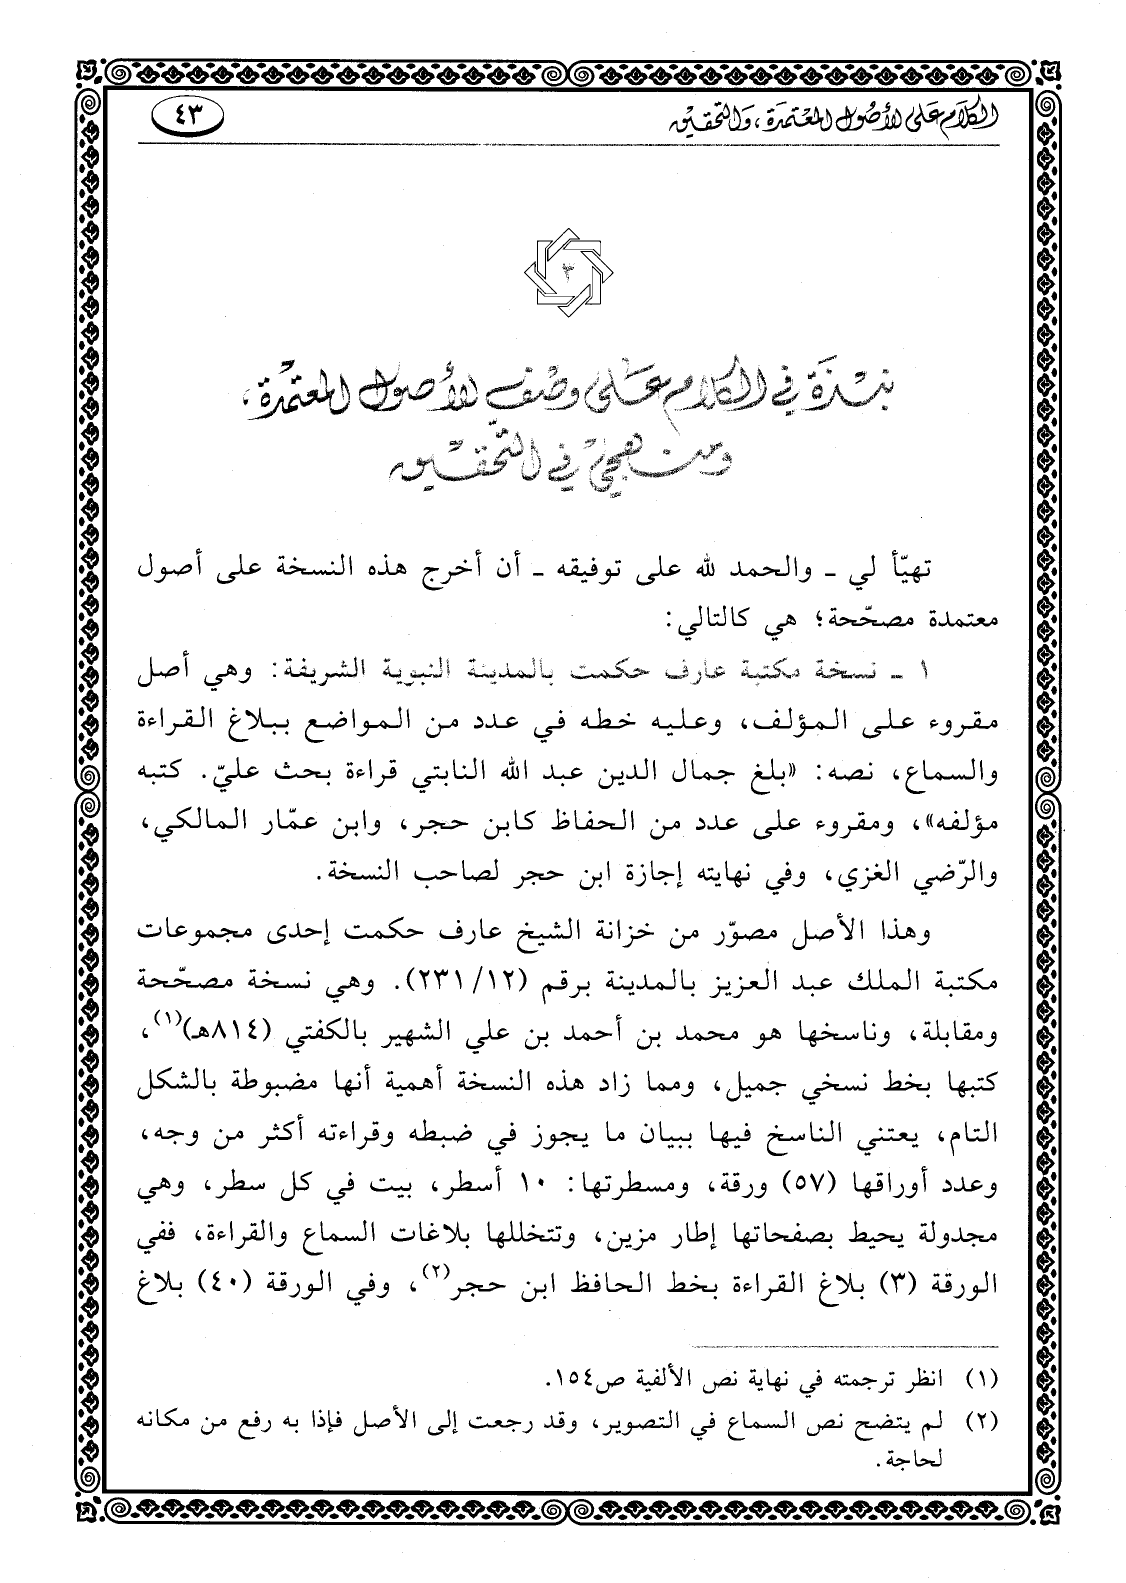 الكلام على الأصول المعتمدة، والتحقيق
٤٣
٣
نبذة في الكلام على وصف الأصول المعتمدة،
ومنهجي في التحقيق
تهيّأ لي ـ والحمد لله على توفيقه ـ أن أخرج هذه النسخة على أصول
معتمدة مصحّحة؛ هي كالتالي:
١ ـ نسخة مكتبة عارف حكمت بالمدينة النبوية الشريفة: وهي أصل
مقروء على المؤلف، وعليه خطه في عدد من المواضع ببلاغ القراءة
والسماع، نصه: «بلغ جمال الدين عبد الله النابتي قراءة بحث عليّ. كتبه
مؤلفه»، ومقروء على عدد من الحفاظ كابن حجر، وابن عمّار المالكي،
والرّضي الغزي، وفي نهايته إجازة ابن حجر لصاحب النسخة.
وهذا الأصل مصوّر من خزانة الشيخ عارف حكمت إحدى مجموعات
مكتبة الملك عبد العزيز بالمدينة برقم (٢٣١/١٢). وهي نسخة مصحّحة
ومقابلة، وناسخها هو محمد بن أحمد بن علي الشهير بالكفتي (٨١٤هـ)(١)،
كتبها بخط نسخي جميل، ومما زاد هذه النسخة أهمية أنها مضبوطة بالشكل
التام، يعتني الناسخ فيها ببيان ما يجوز في ضبطه وقراءته أكثر من وجه،
وعدد أوراقها (٥٧) ورقة، ومسطرتها: ١٠ أسطر، بيت في كل سطر، وهي
مجدولة يحيط بصفحاتها إطار مزين، وتتخللها بلاغات السماع والقراءة، ففي
الورقة (٣) بلاغ القراءة بخط الحافظ ابن حجر(٢)، وفي الورقة (٤٠) بلاغ
(١) انظر ترجمته في نهاية نص الألفية ص١٥٤.
(٢) لم يتضح نص السماع في التصوير، وقد رجعت إلى الأصل فإذا به رفع من مكانه
لحاجة.